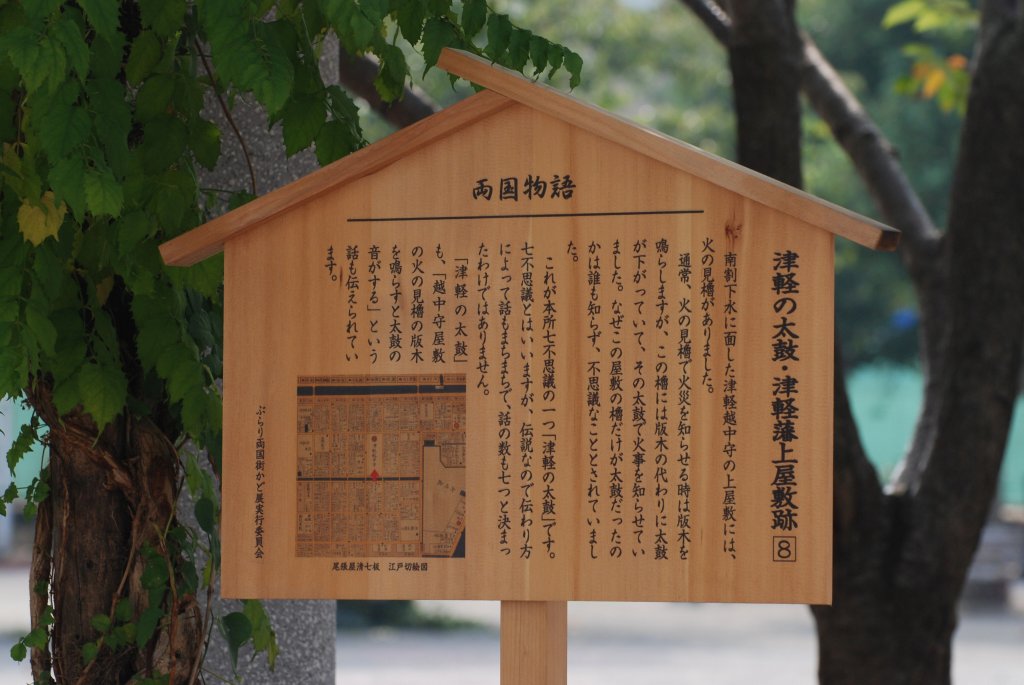 両国物語
津軽の太鼓・津軽藩上屋敷跡 8
南割下水に面した津軽越中守の上屋敷には、
火の見櫓がありました。
通常、火の見櫓で火災を知らせる時は版木を
鳴らしますが、この櫓には版木の代わりに太鼓
が下がっていて、その太鼓で火事を知らせてい
ました。なぜこの屋敷の櫓だけが太鼓だったの
かは誰も知らず、不思議なこととされていまし
た。
これが本所七不思議の一つ「津軽の太鼓」です。
七不思議とはいいますが、伝説なので伝わり方
によって話もまちまちで、話の数も七つと決まっ
たわけではありません。
「津軽の太鼓」
も、「越中守屋敷
の火の見櫓の版木
を鳴らすと太鼓の
音がする」という
話も伝えられてい
ます。
尾張屋清七板 江戸切絵図
ぶらり両国街かど展実行委員会